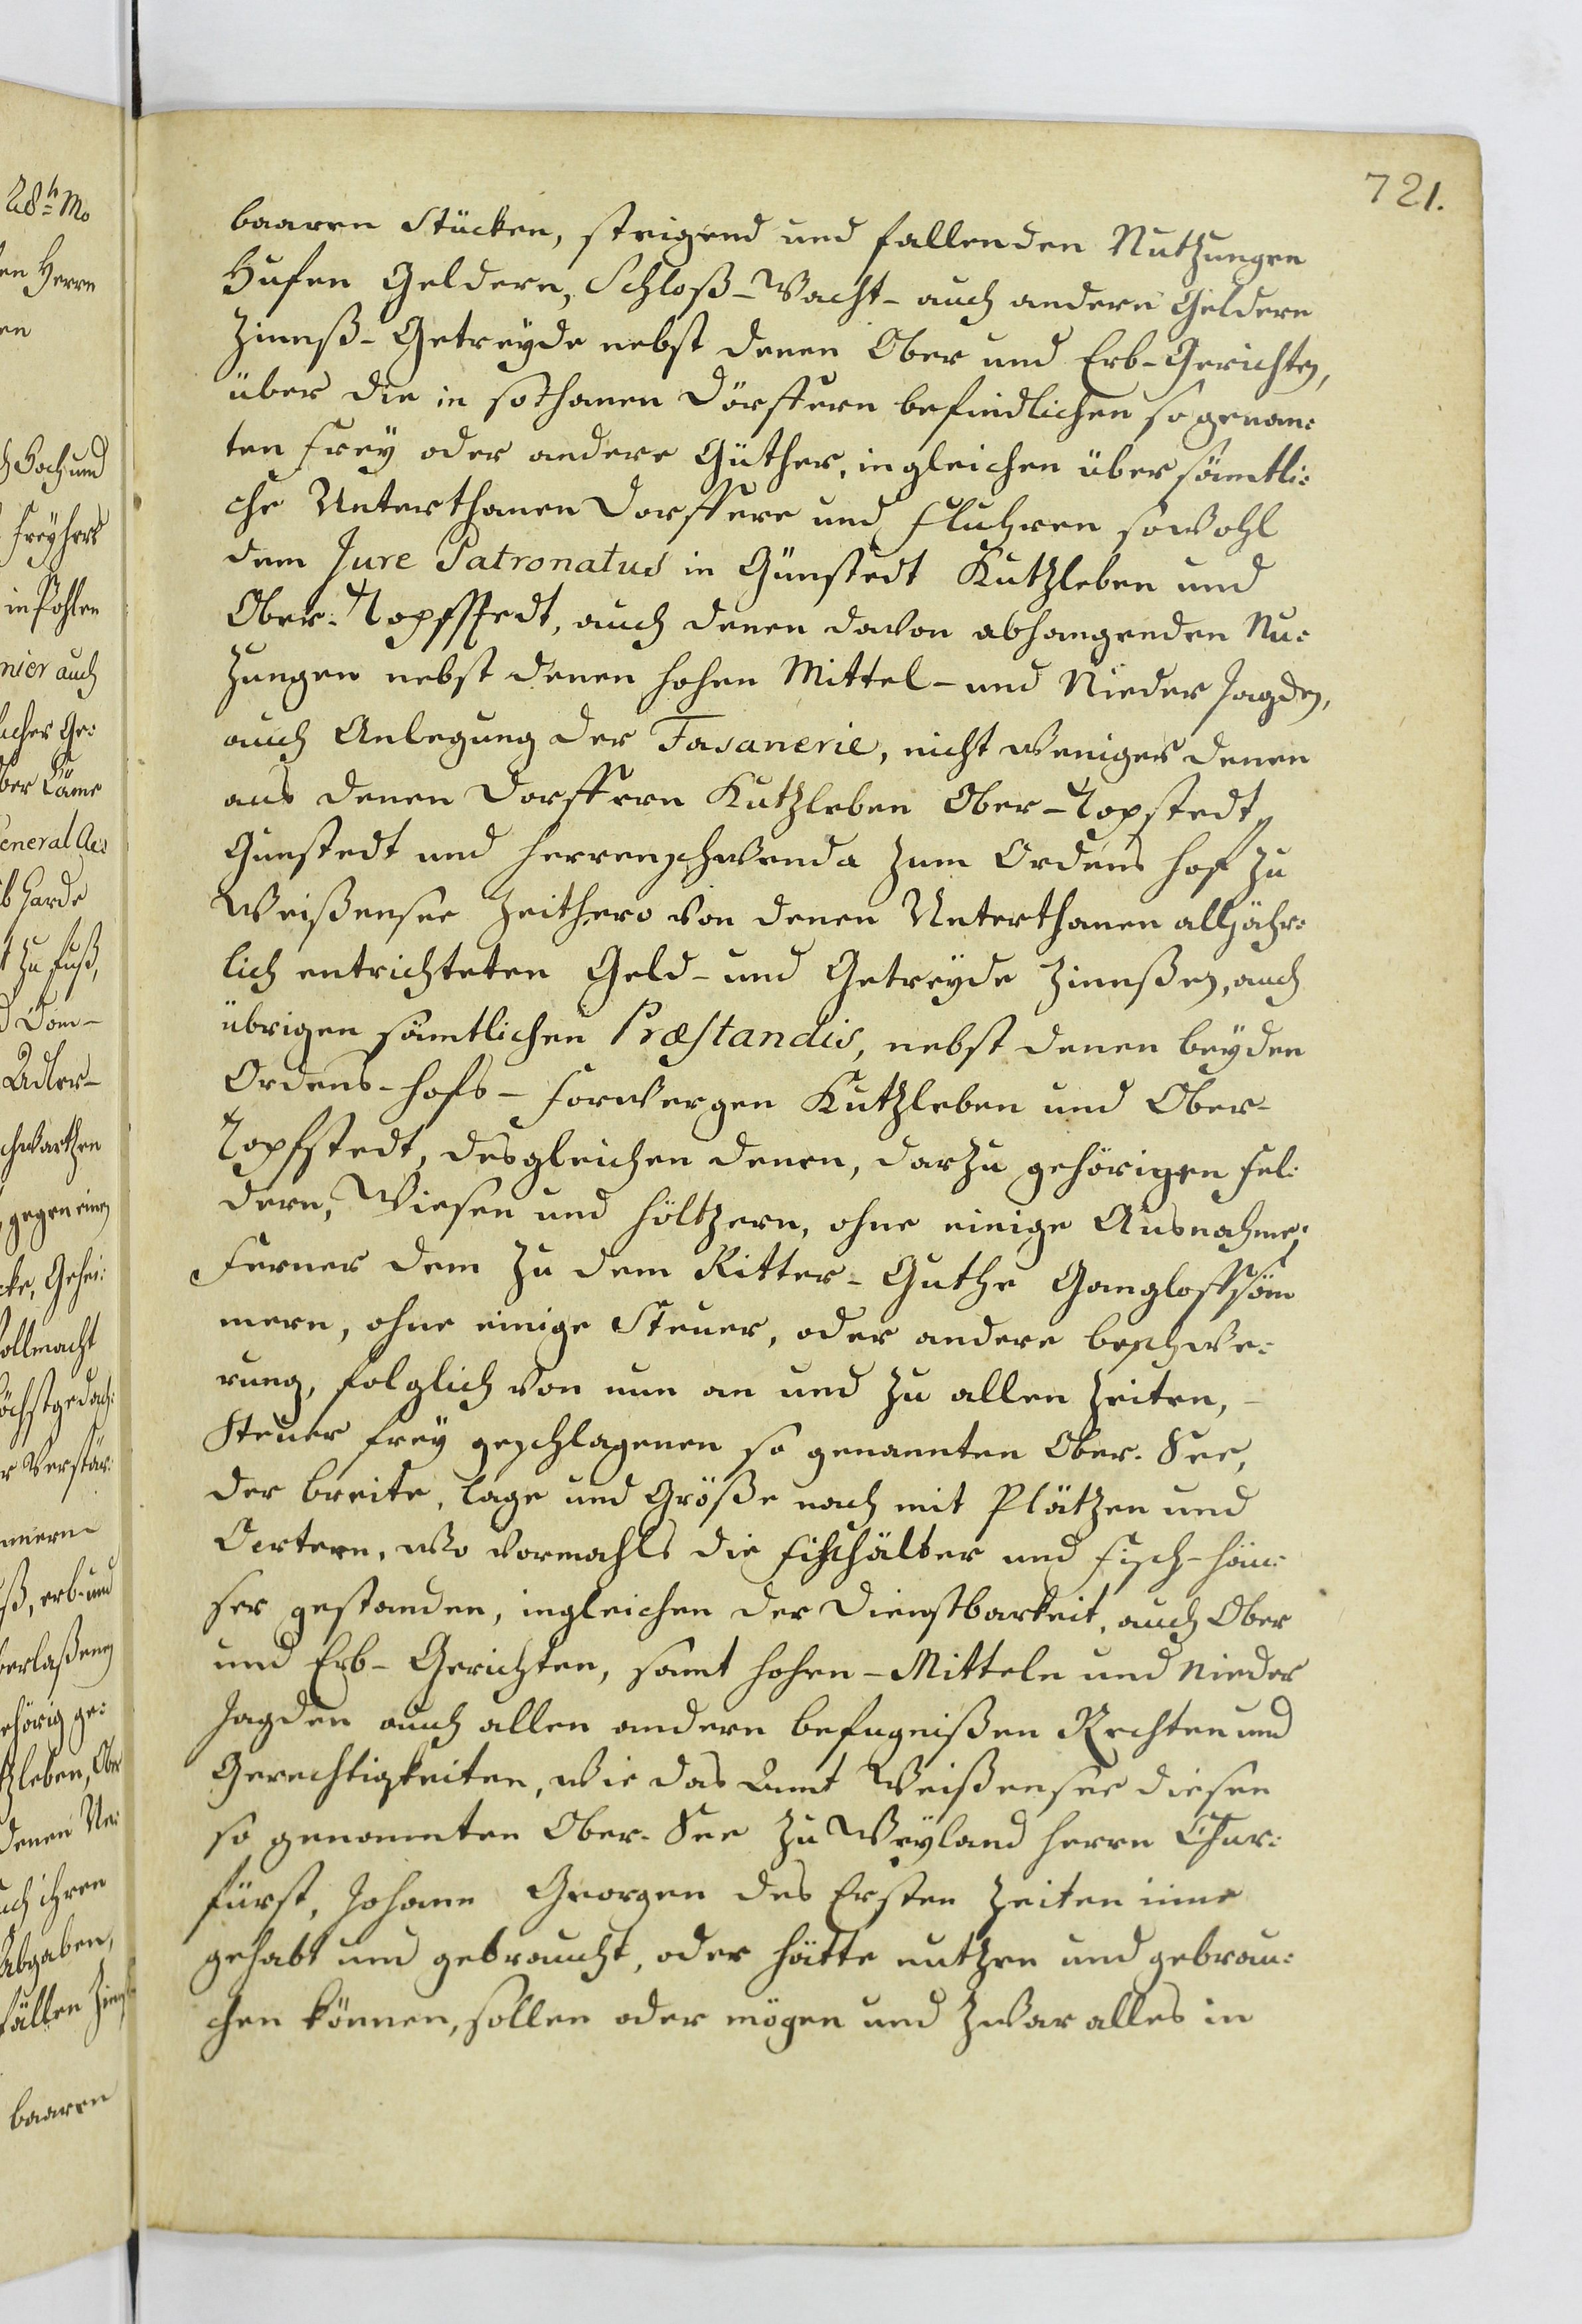 721.
baaren Stücken, steigend und fallenden Nutzungen
Hufen Geldern, Schloß-Wacht- auch andern Geldern
Zinnß-Getreyde nebst denen Ober und Erb-Gerichten,
über die in sothanen Dörffern befindlichen so genan:
ten Frey oder andere Güther, ingleichen über sämtli:
che Unterthanen Dorffere und Fluhren sowohl
dem Jure Patronatus in Günstedt Kutzleben und
Ober-Topffstedt, auch denen davon abhangenden Nu:
zungen nebst denen hohen Mittel- und Nieder Jagden,
auch Anlegung der Fasanerie, nicht weniger denen
aus denen Dorffern Kutzleben Ober-Topstedt,
Gunstedt und Herrenschwenda zum Ordens Hof zu
Weißensee zeithero von denen Unterthanen alljähr:
lich entrichteten Geld- und Getreyde Zinnßen, auch
übrigen sämtlichen Præstandis, nebst denen beyden
Ordens-Hofs-Forwergen Kutzleben und Ober-
Topfstedt, desgleichen denen, darzu gehörigen Fel:
dern, Wiesen und Höltzern, ohne einige Ausnahme;
Ferner dem zu dem Ritter-Guthe Gangloffsöm
mern, ohne einige Steuer, oder andere beschwe:
rung, folglich von nun an und zu allen Zeiten, -
Steuer frey geschlagenen so genannten Ober-See,
der breite, lage und Größe nach mit Plätzen und
Oertern, wo vormahls die Fischhälter und Fisch-Häu:
ser gestanden, ingleichen der Dienstbarkeit, auch Ober
und Erb-Gerichten, samt Hohen-Mitteln und Nieder
Jagden auch allen andern befugnißen Rechten und
Gerechtigkeiten, wie das Amt Weißensee diesen
so genannten Ober-See zu Weyland Herrn Chur:
fürst, Johann Georgen des Ersten Zeiten inne
gehabt und gebraucht, oder hätte nutzen und gebrau:
chen können, sollen oder mögen und zwar alles in